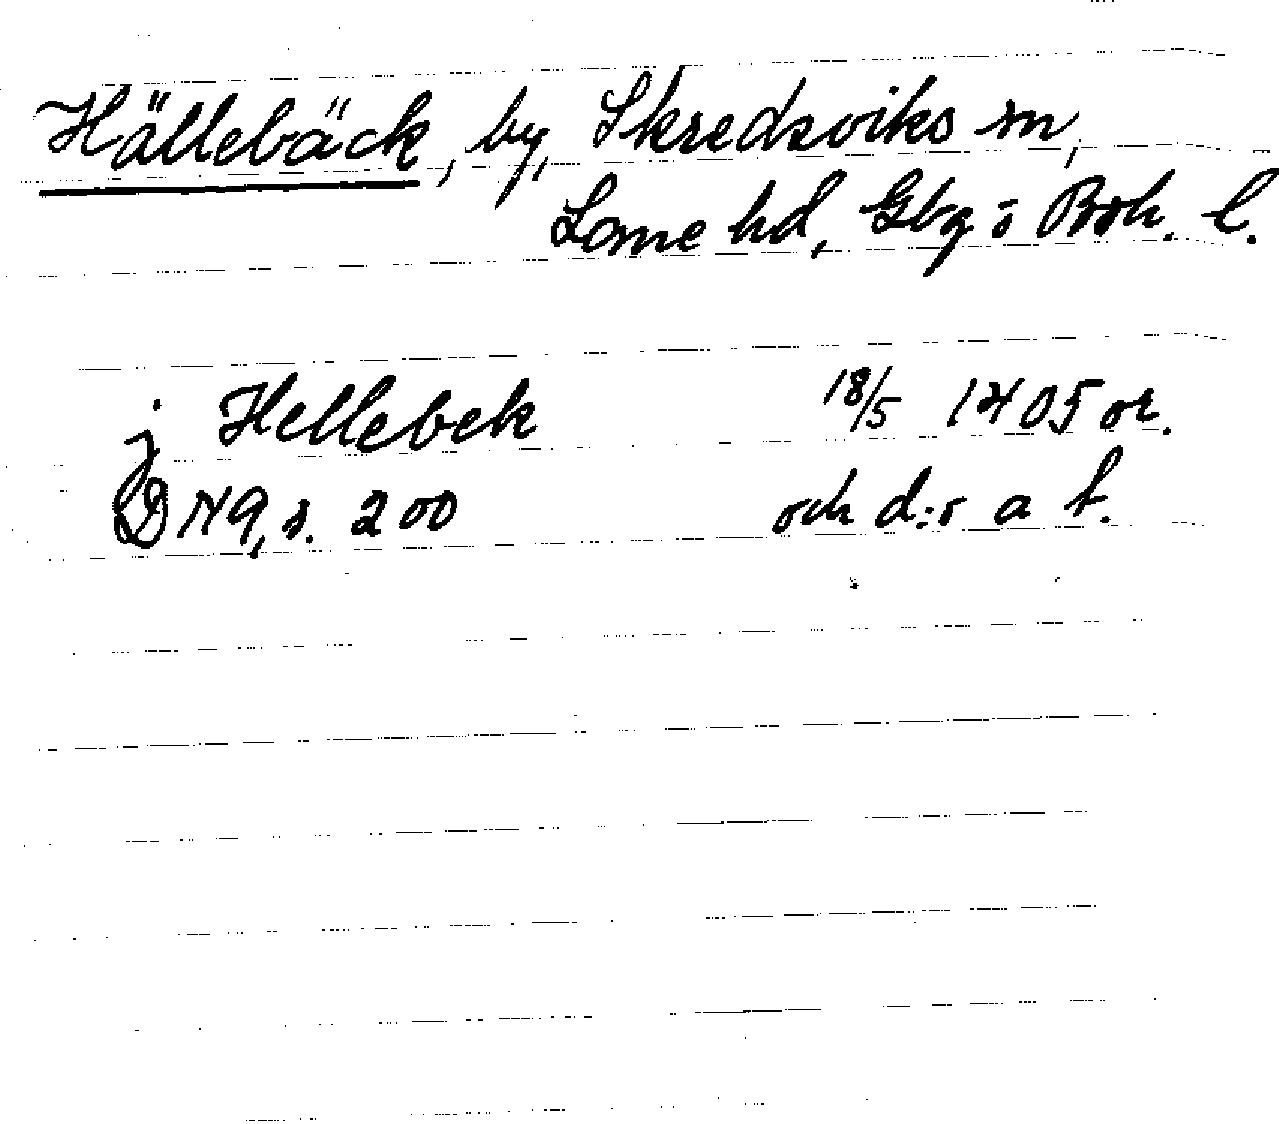 Hällebäck, by, Skredsviks sn,
Lane hd, Gbg ō Boh. l.
j Hellebek 18/5 1405 or.
D 149, s. 200 och d:o a f.